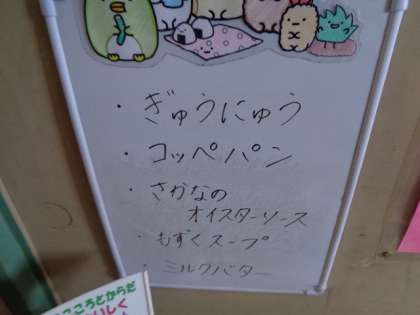 ・ぎゅうにゅう
・コッペパン
・さかなの
オイスターソース
・もずくスープ
・ミルクバター
こころとからだ